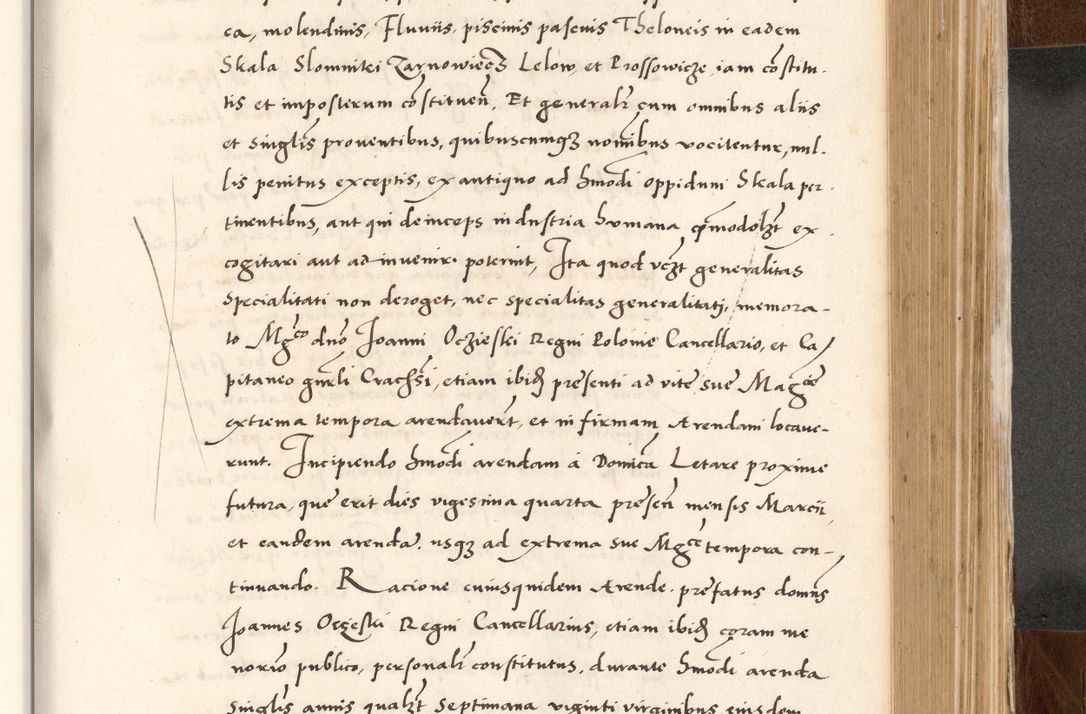 ca, molendinis, Fluviis, piscinis pascuis Theloneis in eadem
Skala Slomniki Zarnowiecz Lelow et Prossowicze iam cõstitu-
tis et imposterum cõstituen̄. Et generalr̄ cum omnibus aliis
et singlis̄ proventibus, quibuscumqʒ nomībus vocitentur, nul-
lis penitus exceptis, ex antiquo ad hmodi oppidum Skala per-
tinentibus, aut qui deinceps industria humana qmodolꝫt ex-
cogitari aut ad inveniri poterint, Ita quod vꝫt generalitas
specialitati non deroget, nec specialitas generalitati, memora-
to Mgco dno Joanni Oczieski Regni Polonie Cancellario, et Ca-
pitaneo gnrli Crac̄ħsi, etiam ibid̄ presenti ad vite sue Magcē
extrema tempora arendaverūt, et in firmam Arendam locave-
runt. Incipiendo hmodi arendam á Donica Letare proxime
futura, que erit dies vigesima quarta presen̄ mensis Marcii,
et eandem arendā, usqʒ ad extrema sue Mgcē tempora con-
tinuando. Racione cuiusquidem Arende, prefatus domūs
Joannes Oczeski Regni Cancellarius, etiam ibid̄ coram me
norio publico, personalr̄ constitutus, durante hmodi arenda
singlis̄ annis qualꝫt Septimana viginti virginibus eiusdem